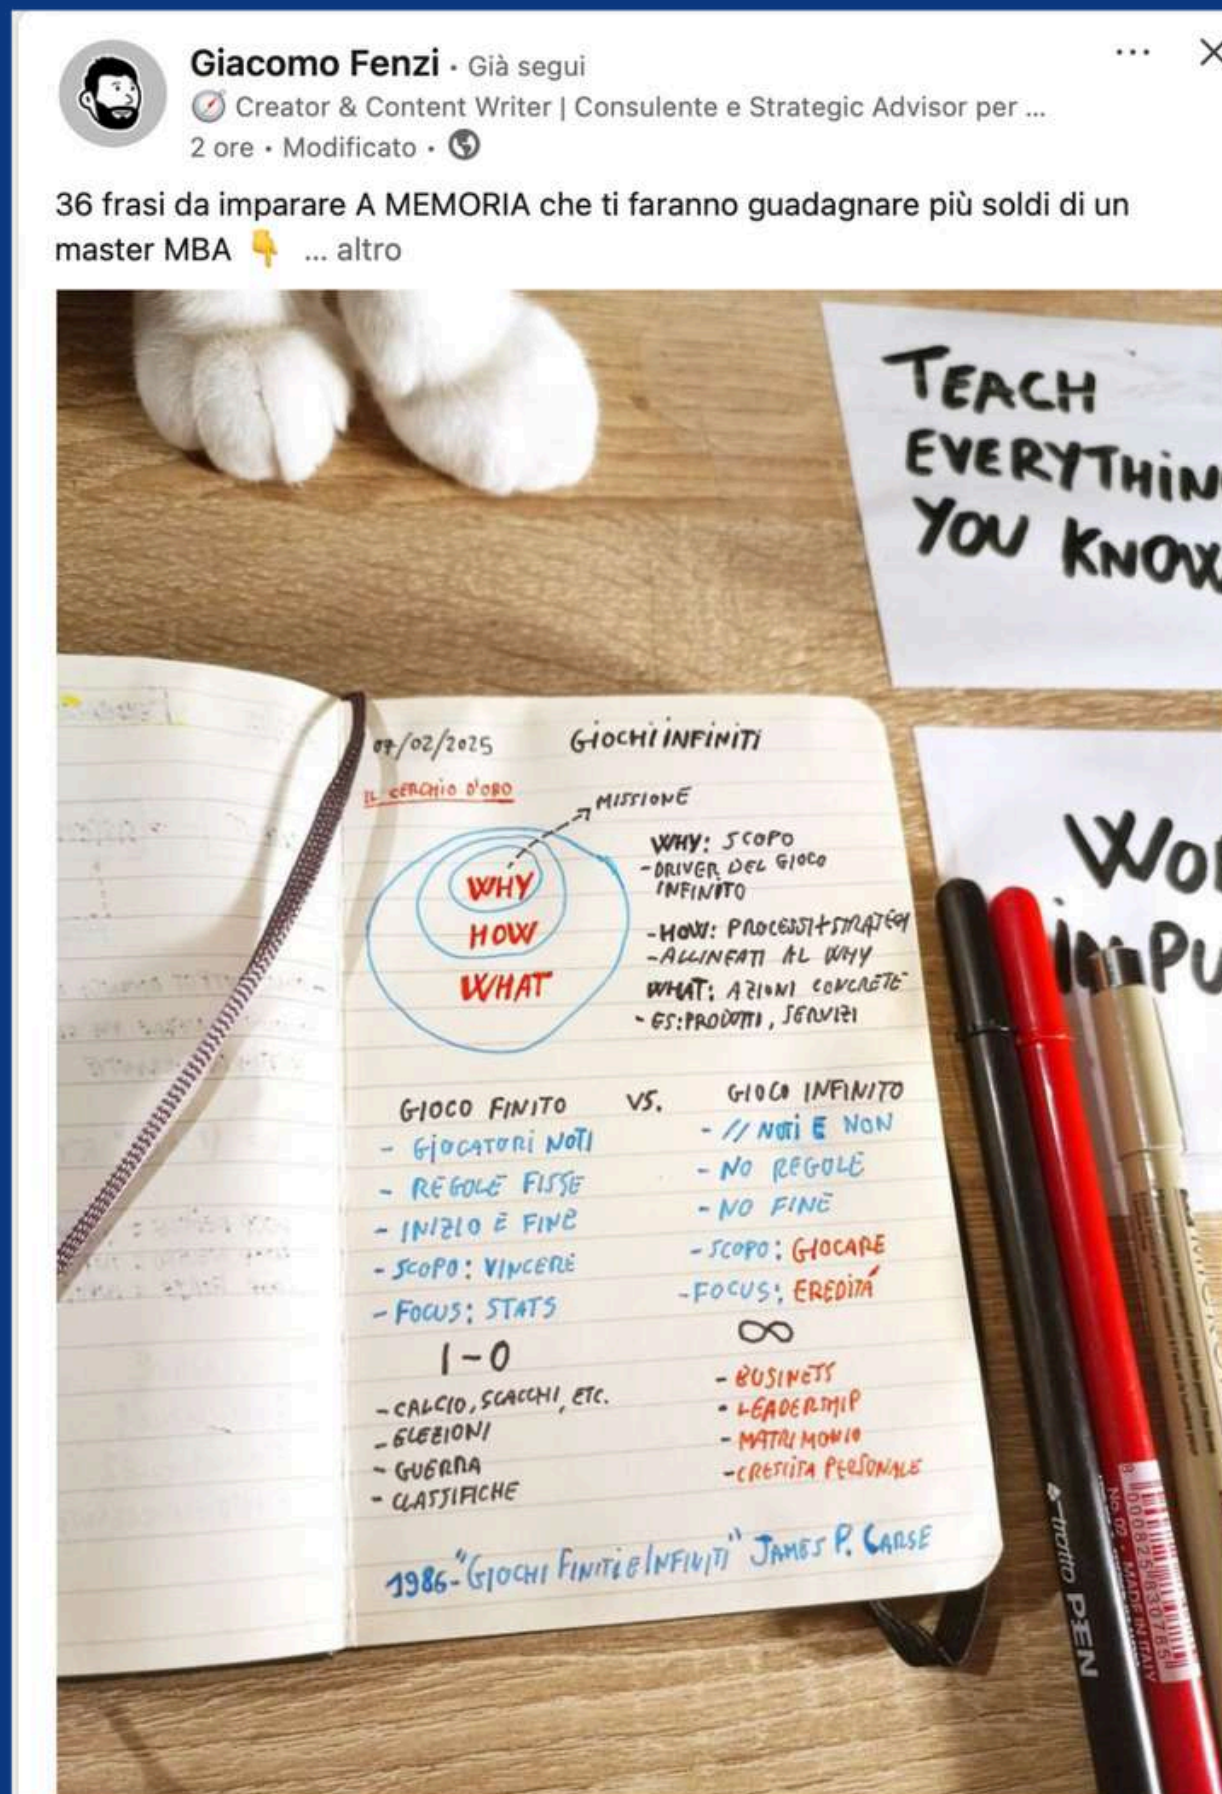 Giacomo Fenzi · Già segui
Creator & Content Writer | Consulente e Strategic Advisor per ...
2 ore • Modificato •
36 frasi da imparare A MEMORIA che ti faranno guadagnare più soldi di un
master MBA 👇 ... altro
TEACH
EVERYTHIN
YOU KNOW
07/02/2025 GIOCHI INFINITI
IL CERCHIO D'ORO
MISSIONE
WHY
HOW
WHAT
WHY: SCOPO
- DRIVER DEL GIOCO
INFINITO
- HOW: PROCESSI + STRATEGY
- ALLINEATI AL WHY
WHAT: AZIONI CONCRETE
- ES: PRODOTTI, SERVIZI
WO
IN PU
GIOCO FINITO VS. GIOCO INFINITO
- GIOCATORI NOTI
- REGOLE FISSE
- INIZIO E FINE
- SCOPO: VINCERE
- FOCUS: STATS
1-0
- CALCIO, SCACCHI, ETC.
- ELEZIONI
- GUERRA
- CLASSIFICHE
- // NOTI E NON
- NO REGOLE
- NO FINE
- SCOPO: GIOCARE
- FOCUS: EREDITÁ
∞
- BUSINESS
- LEADERSHIP
- MATRIMONIO
- CRESCITA PERSONALE
1986 - "GIOCHI FINITI E INFINITI" JAMES P. CARSE
tratto PEN
No. 02 • MADE IN ITALY
8 000825 830785